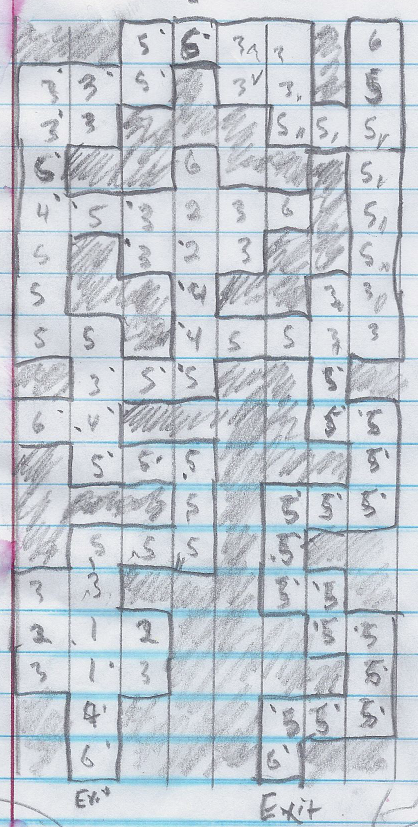 5 6 3 3 6
3 3 5 3 3 5
3 3 5 5 5
6 6 5
4 5 3 2 3 6 5
5 3 2 3 5
5 4 3 3
5 5 4 5 5 3 3
3 5 5 5
6 4 5 5
5 5 5 5
5 5 5 5
5 5 5 5
3 3 5 5
2 1 2 5 5
3 1 3 5
4 5 5 5
6 6
Exit Exit